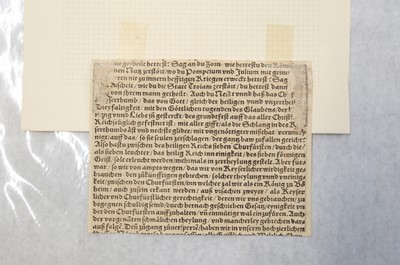 ne getheilt hettest: Sag an du Zorn / wie hettestu den Römi
chen Nutz zerstört / wo du Pompeium vnd Julium mit grim
en nie zu jnnern hefftigen Kriegen erweckt hettest: Sag
Vnkeuscheit / wie du die Statt Troiam zerstört / du hettest dann
von jhrem mann getheilt: Auch du Neidt vnnd haß das Ch
serthumb / das von Gott / gleich der heiligen vnnd vnzerthe
Dreyfaltigkeit / mit den Göttlichen tugenden des Glaubens / der
ng vnnd Liebe ist gesterckt / des grundfest auff das aller Christl
Reich seliglich gefestnet ist: mit alter gifft / als die Schlang in des K
serthumbs äst vnd nechste glider / mit vngenöttiger mißthat / vermisch
nigt / auff das / so sie seulen zerschlagen / der gang baw zufallen gericht
Also hastu zwischen des heiligen Reichs sieben Churfürsten / durch die /
als sieben leuchter / das heilig Reich inn einigkeit / des sieben förmigen
Geist / solt erleucht werden / mehrmals in zertheylung gestelt. Aber für
war / so wir von ampts wegen / das wir von Keyserlicher wirdigkeit ge
brauchen / den zukünfftigen gebrechen / solcher theylung vnnd vneinig
keit / zwischen den Churfürsten / inn welcher zal wir als ein König zu Bö
heim / auch zu sein erkant werden / auß vrsachen zweyer / als Keyser
licher vnd Churfürstlicher gerechtigkeit / deren wir vns gebrauchen / zu
begegnen schuldig seind / durch hernach geschriben Gesatz / einigkeit vn
der den Churfürsten auffzuhalten / vñ einmütige wal einzufüren. Auch
der vorgenãten schmählichen theylung / vnd mancherley gebrechen dar
auß folgē. Den zůgang zůuersperrē / haben wir in vnserm hochzierlichen